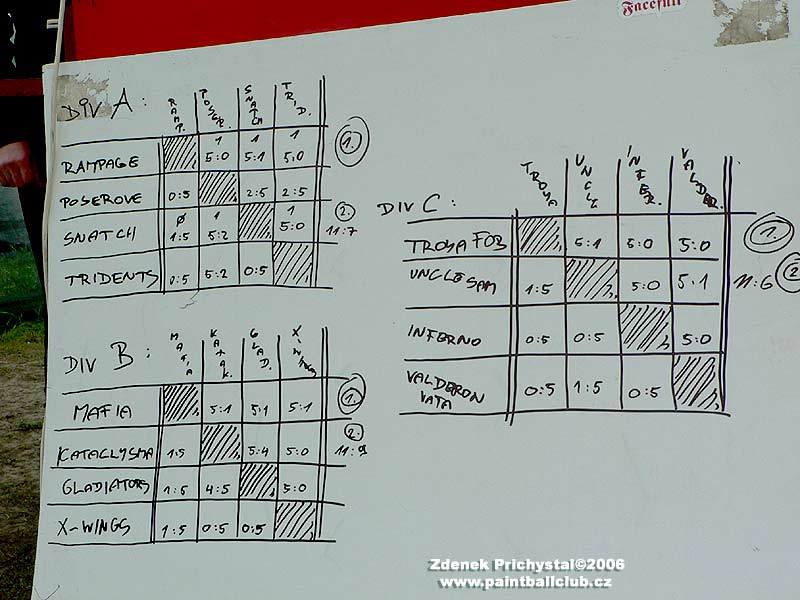 Facefull
DIV A:
RAMP. POSER. SNATCH TRID.
1 1 1
RAMPAGE 5:0 5:1 5:0 1.
POSEROVE 0:5 2:5 2:5
Ø 1 1 2.
SNATCH 1:5 5:2 5:0 11:7
TRIDENTS 0:5 5:2 0:5
DIV B:
MAFIA KATAK. GLAD. X-WINGS
MAFIA 5:1 5:1 5:1 1.
2.
KATACLYSMA 1:5 5:4 5:0 11:9
GLADIATORS 1:5 4:5 5:0
X-WINGS 1:5 0:5 0:5
DIV C:
TROYA UNCLE INFER. VALDER.
TROYA FOB 5:1 5:0 5:0 1.
UNCLE SAM 1:5 5:0 5:1 11:6 2
INFERNO 0:5 0:5 5:0
VALDERON 0:5 1:5 0:5
VATA
Zdenek Prichystal©2006
www.paintballclub.cz